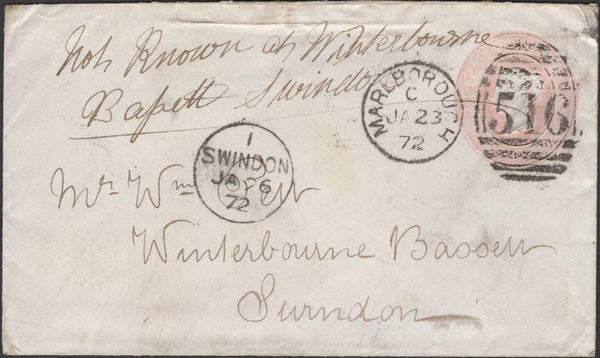 Not Known at Winterbourne
Bassett Swindon
MARLBOROUGH
C
JA 23
72
516
1
SWINDON
JA 26
72
Mr. Wm
Winterbourne Bassett
Swindon